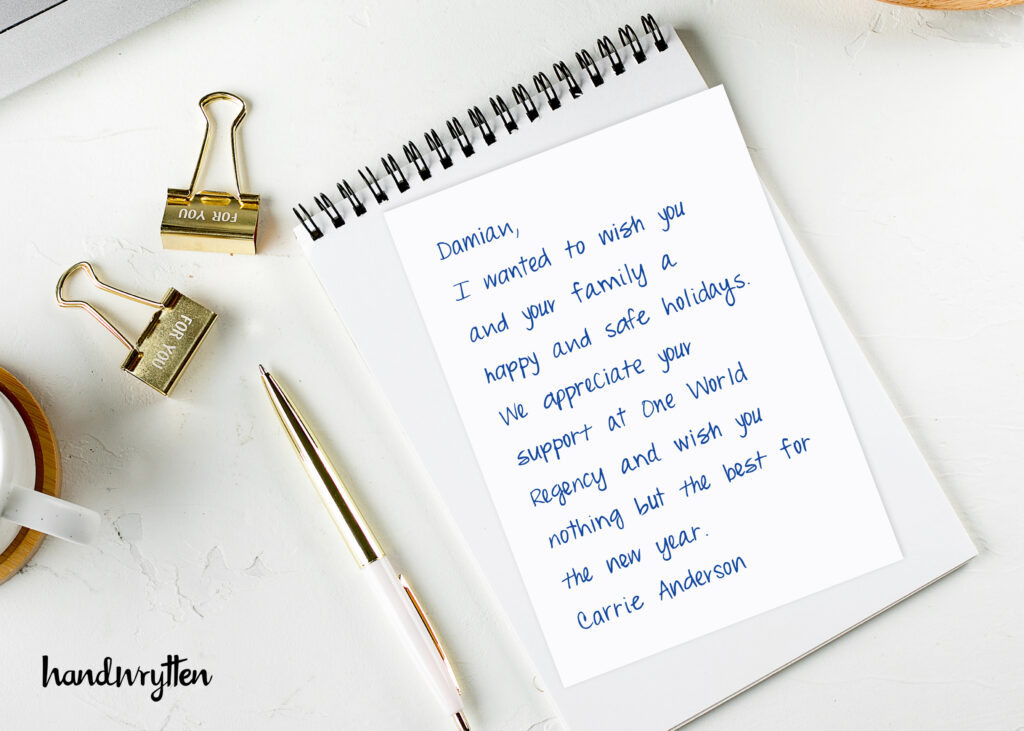 FOR YOU
FOR YOU
Damian,
I wanted to wish you
and your family a
happy and safe holidays.
We appreciate your
support at One World
Regency and wish you
nothing but the best for
the new year.
Carrie Anderson
handwrytten